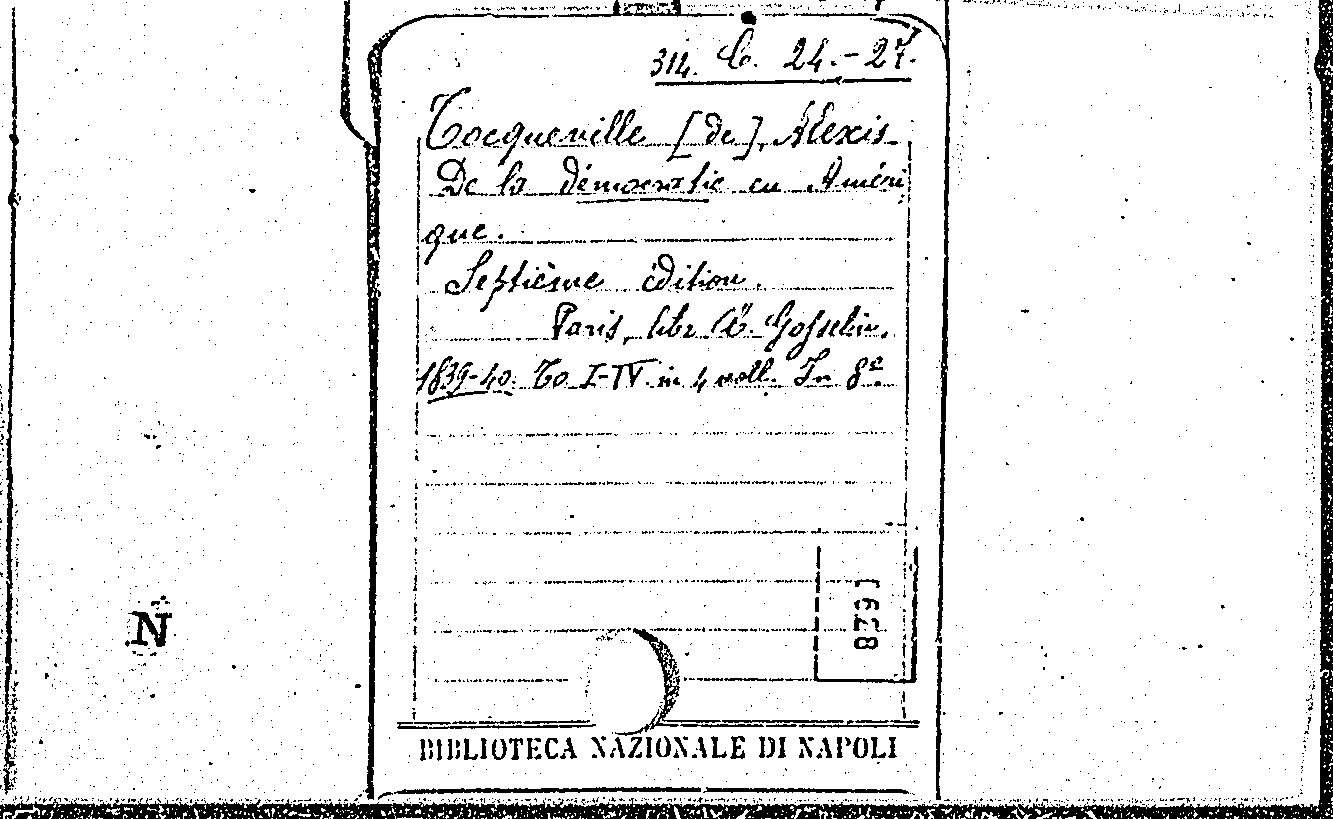 314. C. 24.-27.
Tocqueville [de], Alexis.
De la démocratie en Améri
que.
Septième édition.
Paris, libr Ch. Gosselin,
1839-40. To I-IV. in 4 voll. In 8°.
8391
N
BIBLIOTECA NAZIONALE DI NAPOLI